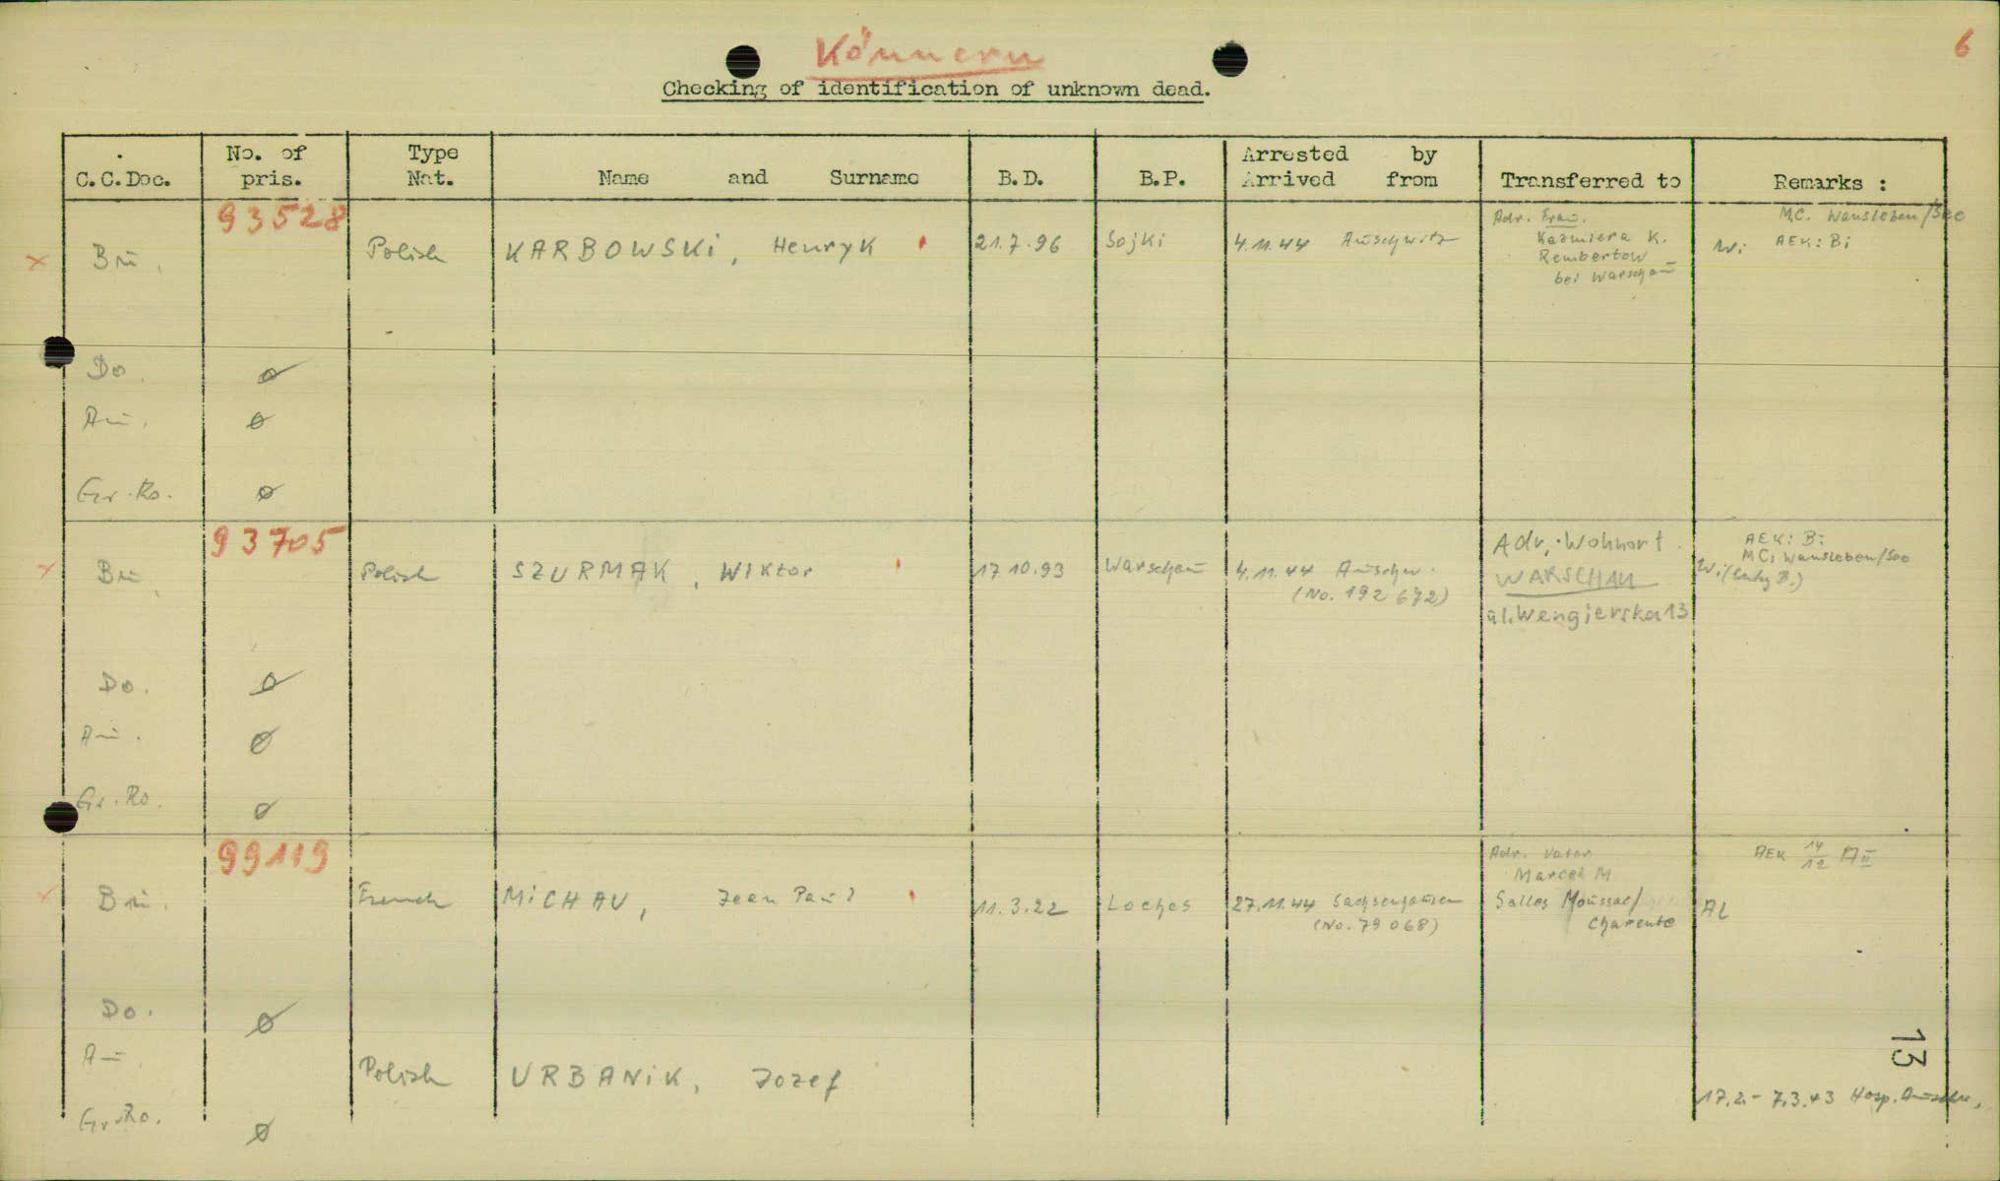 Könnern
6
Checking of identification of unknown dead.
C.C.Doc.
No. of pris.
Type Nat.
Name and Surname
B.D.
B.P.
Arrested by
Arrived from
Transferred to
Remarks :
93528
Bu.
Polish
KARBOWSKi, Henryk
21.7.96
Sojki
4.11.44 Auschwitz
Adr. Frau.
Kazmiera K.
Rembertow
bei Warschau
MC. Wansleben/See
Wi AEK: Bi
Do.
Au.
Gr.Ro.
93705
Bu
Polish
SZURMAK, Wiktor
17.10.93
Warschau
4.11.44 Auschw.
(No. 192 672)
Adr. Wohnort
WARSCHAU
ul. Wengierska 13
AEK: Bi
MC. Wansleben/See
Do.
Au.
Gr.Ro.
99119
Bu.
French
MiCHAU, Jean Paul
11.3.22
Loches
27.11.44 Sachsenhausen
(No. 79 068)
Adr. Vater
Marcel M
Salles Moussac/
Charente
AEK 14/12 AII
AL
Do.
Au.
Polish
URBANiK, Jozef
13
17.2.- 7.3.43 Hosp. Auschw.
Gr.Ro.